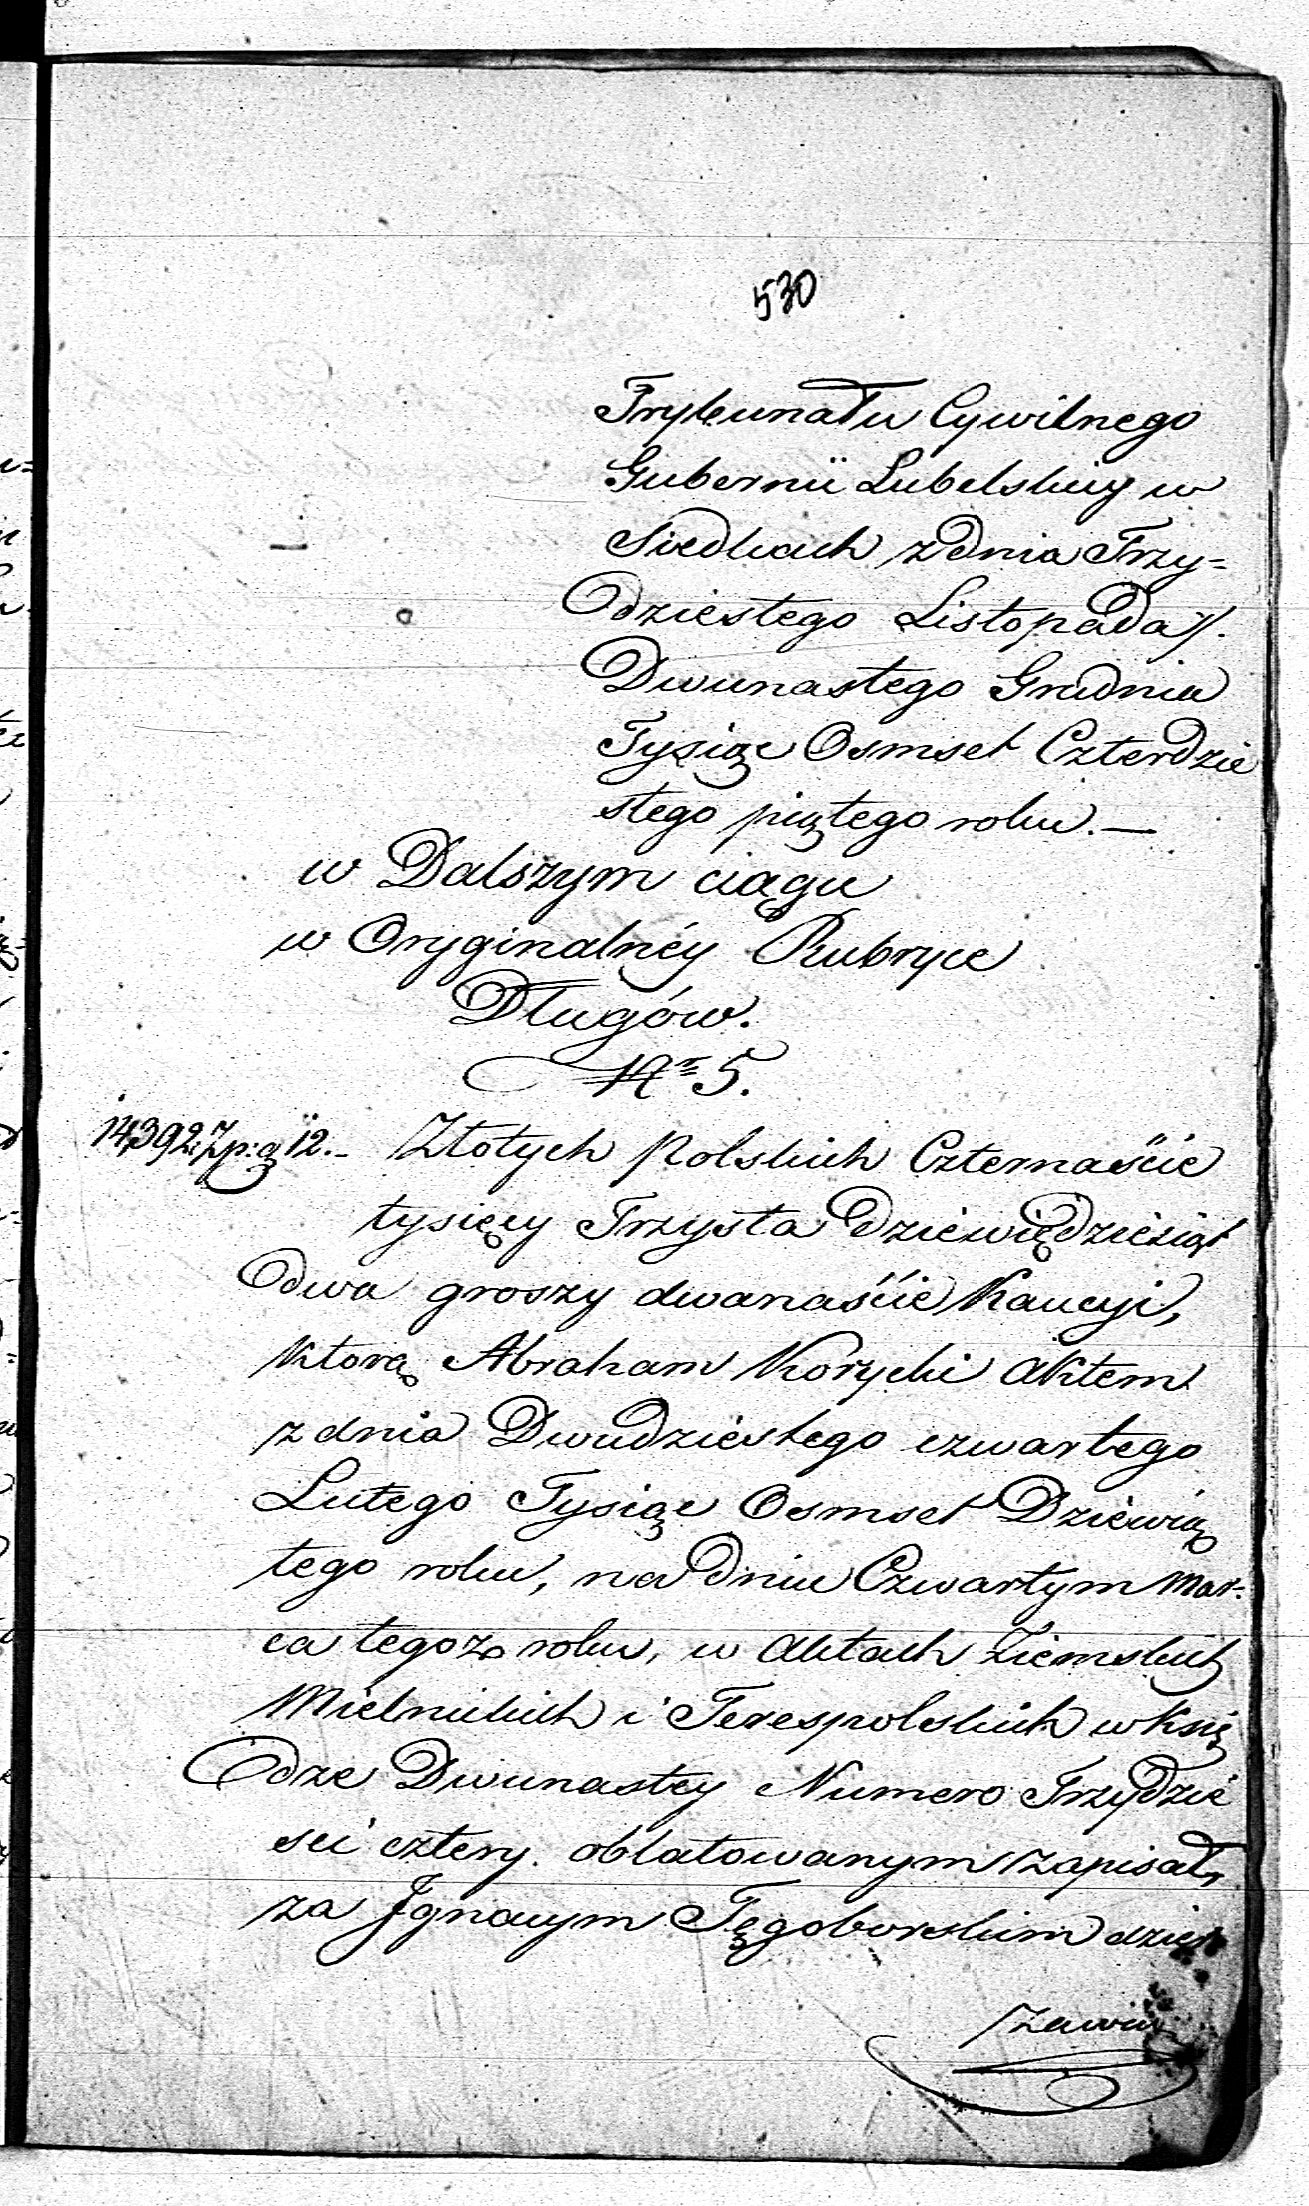 530
Trybunału Cywilnego
Gubernii Lubelskiey w
Siedlcach z dnia Trzy-
dziestego Listopada /.
Dwunastego Grudnia
Tysiąc Osmset Czterdzie
stego piątego roku. —
w Dalszym ciągu
w Oryginalnéy Rubryce
Długów.
Nr 5.
14,392 Zp: g 12. - Złotych Polskich Czternaście
tysięcy Trzysta dziewiędziesiąt
dwa groszy dwanaście Kaucyi,
którą Abraham Korycki Aktem
z dnia Dwudziestego czwartego
Lutego Tysiąc Osmset Dziewią
tego roku, na dniu Czwartym Mar-
ca tegoż roku, w Aktach Ziemskich
Mielnickich i Terespolskich w Księ
dze Dwunastey Numero Trzydzie
sci cztery. oblatowanym zapisał,
za Jgnacym Tęgoborskim dzier